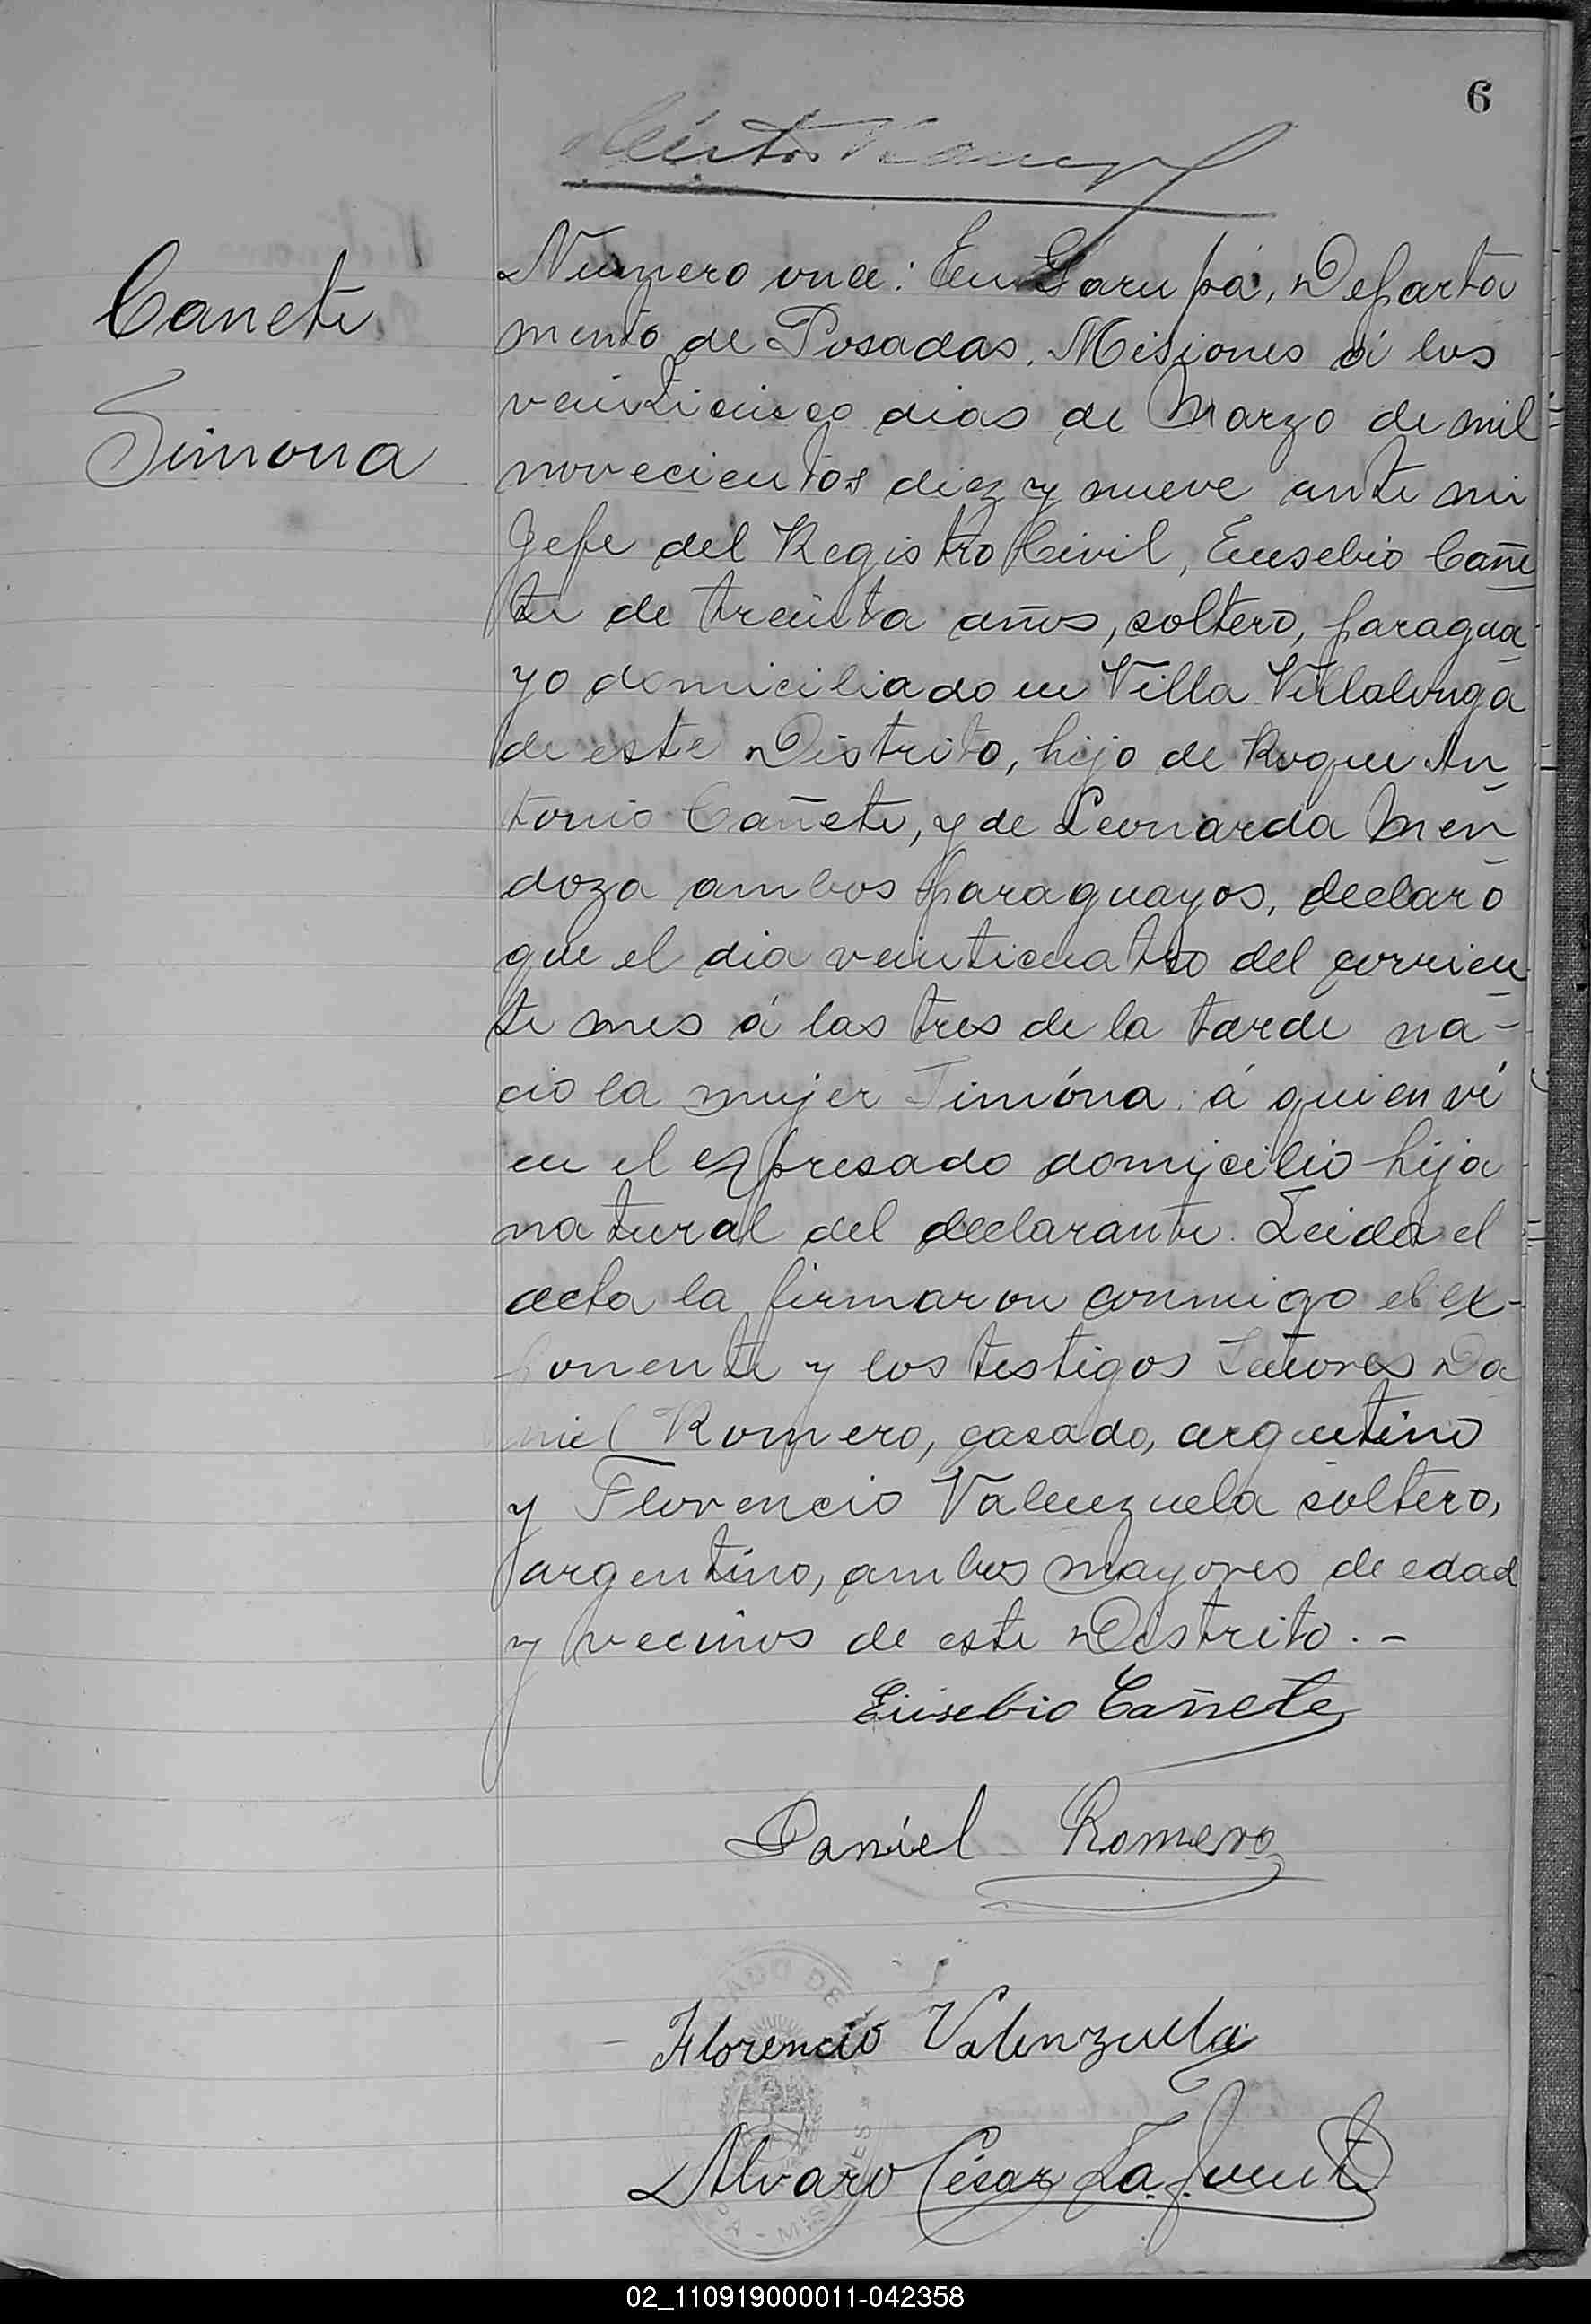 6
Canete
Simona
Numero once: En Garupá, Departa
mento de Posadas, Misiones á los
veinticinco dias de Marzo de mil
novecientos diez y nueve ante mi
Gefe del Registro Civil, Eusebio Cañe
te de treinta años, soltero, paragua
yo domiciliado en Villa Villalonga
de este Distrito, hijo de Roque An
tonio Cañete, y de Leonarda Men
doza ambos paraguayos, declaró
que el dia veinticuatro del corrien
te mes á las tres de la tarde na-
ció la mujer Simóna á quien ví
en el expresado domicilio hija
natural del declarante. Leida el
acta la firmaron conmigo el ex-
ponente y los testigos Señores Da
niel Romero, casado, argentino
y Florencio Valenzuela soltero,
argentino, ambos mayores de edad
y vecinos de este Distrito. -
Eusebio Cañete
Daniel Romero
Florencio Valenzuela
Alvaro César Lafuente
02_110919000011-042358